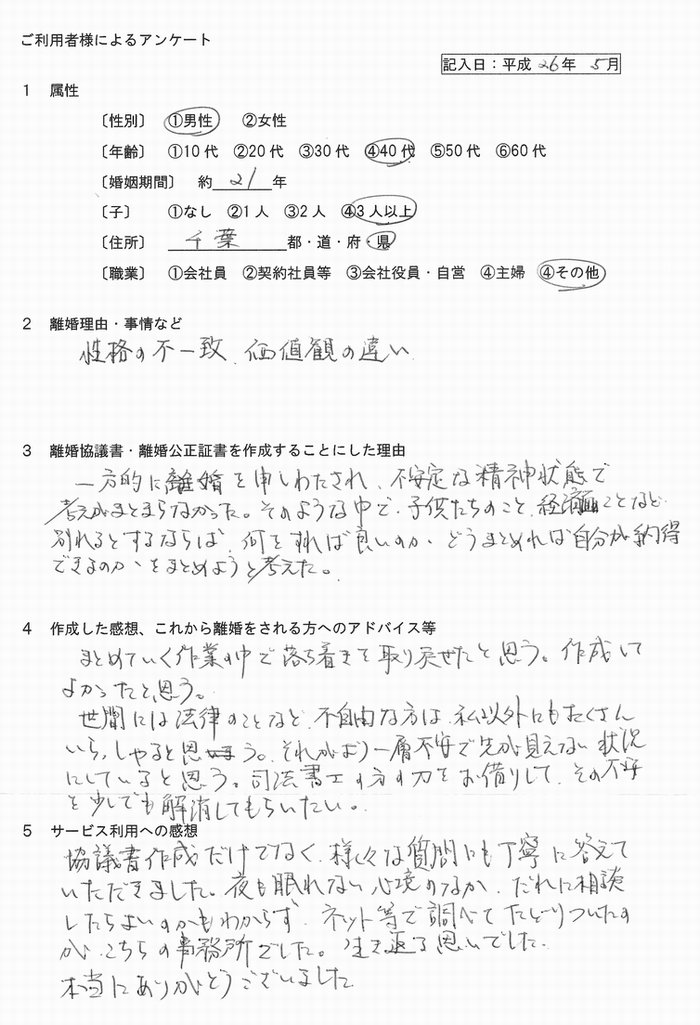 ご利用者様によるアンケート
記入日：平成 26年 5月
1 属性
〔性別〕 ①男性 ②女性
〔年齢〕 ①10代 ②20代 ③30代 ④40代 ⑤50代 ⑥60代
〔婚姻期間〕 約 21 年
〔子〕 ①なし ②1人 ③2人 ④3人以上
〔住所〕 千葉 都・道・府・県
〔職業〕 ①会社員 ②契約社員等 ③会社役員・自営 ④主婦 ④その他
2 離婚理由・事情など
性格の不一致、価値観の違い
3 離婚協議書・離婚公正証書を作成することにした理由
一方的に離婚を申しわたされ、不安定な精神状態で
考えがまとまらなかった。そのような中で、子供たちのこと、経済面ことなど
別れるとするならば、何をすれば良いのか、どうまとめれば自分が納得
できるのか、をまとめようと考えた。
4 作成した感想、これから離婚をされる方へのアドバイス等
まとめていく作業の中で落ち着きを取り戻せたと思う。作成して
よかったと思う。
世間には法律のことなど、不自由な方は、私以外にもたくさん
いらっしゃると思う。それがより一層不安で先が見えない状況
にしていると思う。司法書士の方の力をお借りして、その不安
を少しでも解消してもらいたい。
5 サービス利用への感想
協議書作成だけでなく、様々な質問にも丁寧に答えて
いただきました。夜も眠れない心境のなか、だれに相談
したらよいのかもわからず、ネット等で調べてたどりついたの
が、こちらの事務所でした。生き返る思いでした。
本当にありがとうございました